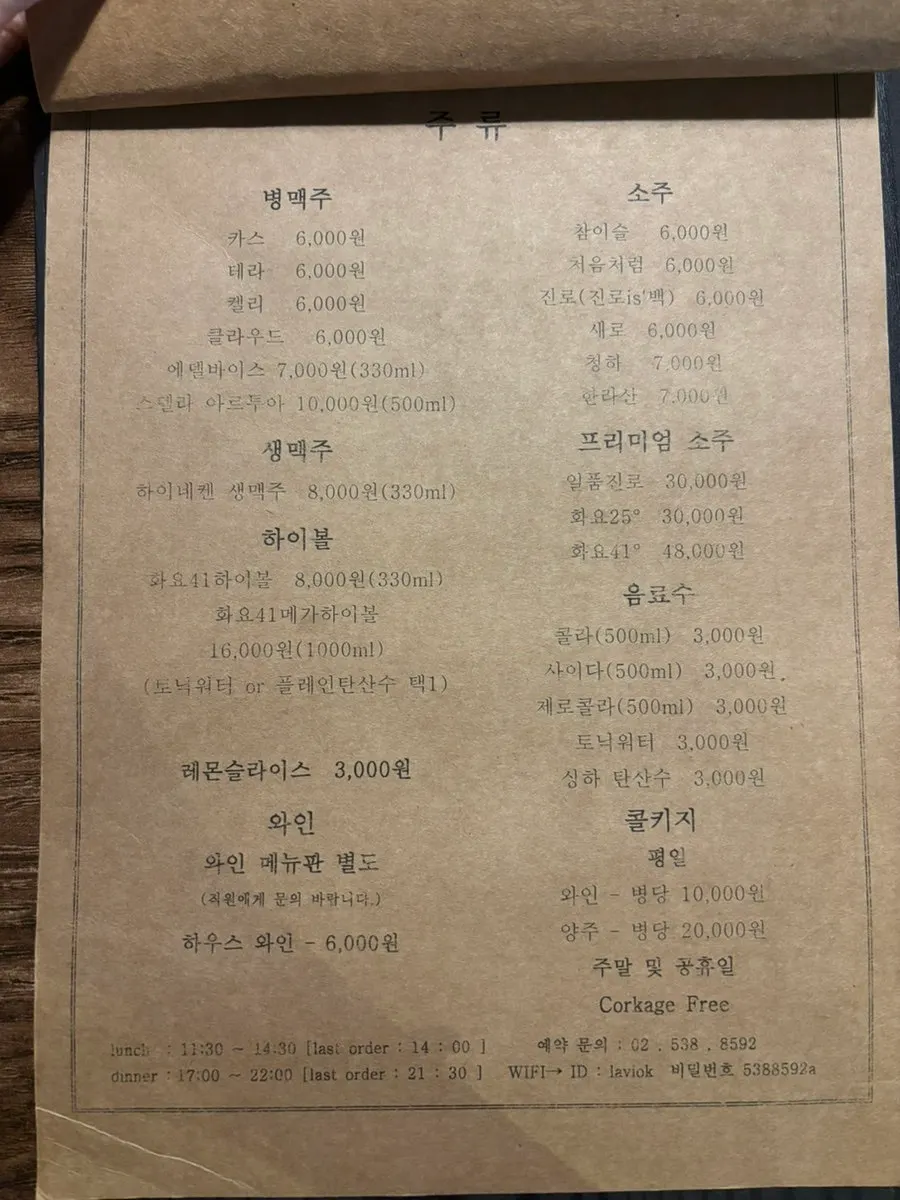 주 류
병맥주
카스 6,000원
테라 6,000원
켈리 6,000원
클라우드 6,000원
에델바이스 7,000원(330ml)
스텔라 아르투아 10,000원(500ml)
생맥주
하이네켄 생맥주 8,000원(330ml)
하이볼
화요41하이볼 8,000원(330ml)
화요41메가하이볼
16,000원(1000ml)
(토닉워터 or 플레인탄산수 택1)
레몬슬라이스 3,000원
와인
와인 메뉴판 별도
(직원에게 문의 바랍니다.)
하우스 와인 - 6,000원
소주
참이슬 6,000원
처음처럼 6,000원
진로(진로is'백) 6,000원
새로 6,000원
청하 7,000원
한라산 7,000원
프리미엄 소주
일품진로 30,000원
화요25° 30,000원
화요41° 48,000원
음료수
콜라(500ml) 3,000원
사이다(500ml) 3,000원
제로콜라(500ml) 3,000원
토닉워터 3,000원
싱하 탄산수 3,000원
콜키지
평일
와인 - 병당 10,000원
양주 - 병당 20,000원
주말 및 공휴일
Corkage Free
lunch : 11:30 ~ 14:30 [last order : 14 : 00 ]
dinner : 17:00 ~ 22:00 [last order : 21 : 30 ]
예약 문의 : 02 . 538 . 8592
WIFI→ ID : laviok 비밀번호 5388592a